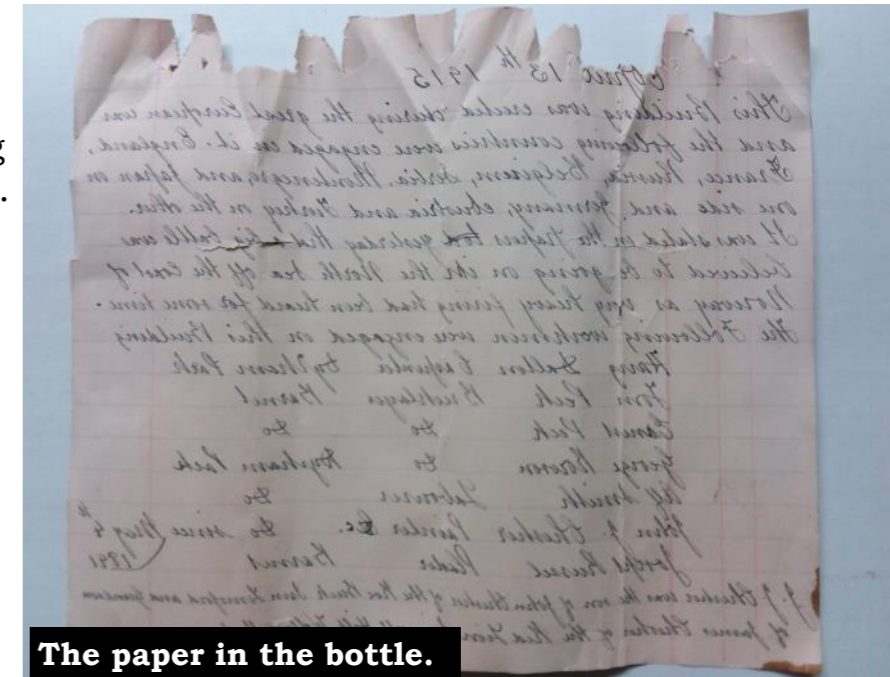 13th 1915
This Building was erected during the great European war
and the following countries were engaged in it. England,
France, Russia, Belgium, Serbia, Montenegro, and Japan on
one side and Germany, Austria and Turkey on the other.
It was stated in the papers yesterday that a big battle was
believed to be going on in the North Sea off the Coast of
Norway as very heavy firing had been heard for some time.
The Following workmen were engaged on this Building
Harry Carpenter Dyrham Park
Tom Peck Bricklayer Barnet
Ernest Peck Do Do
George Do Dyrham Park
Alf Smith Labourer Do
John J. Chesher Painter &c. Do since May 4th
Joseph Russell Barnet 1891
J. J. Chesher was the son of John Chesher of the Roe Buck Inn and Grandson
of James Chesher of the Red Lion
The paper in the bottle.